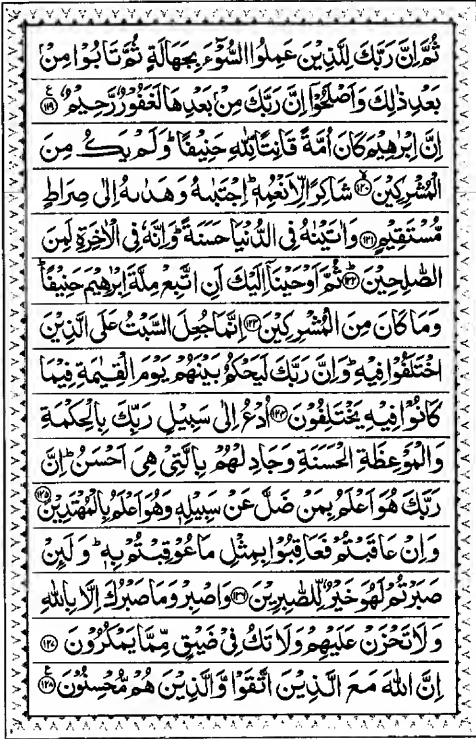 ثُمَّ اِنَّ رَبَّكَ لِلَّذِيْنَ عَمِلُوا السُّوْٓءَ بِجَهَالَةٍ ثُمَّ تَابُوْا مِنْۢ
بَعْدِ ذٰلِكَ وَاَصْلَحُوْۤا اِنَّ رَبَّكَ مِنْۢ بَعْدِهَا لَغَفُوْرٌ رَّحِيْمٌ ؑ﴿۱۱۹﴾
اِنَّ اِبْرٰهِيْمَ كَانَ اُمَّةً قَانِتًا لِّلّٰهِ حَنِيْفًا ؕ وَلَمْ يَكُ مِنَ
الْمُشْرِكِيْنَ ۙ﴿۱۲۰﴾ شَاكِرًا لِّاَنْعُمِهٖ ؕ اِجْتَبٰىهُ وَهَدٰىهُ اِلٰى صِرَاطٍ
مُّسْتَقِيْمٍ ﴿۱۲۱﴾ وَاٰتَيْنٰهُ فِى الدُّنْيَا حَسَنَةً ؕ وَاِنَّهٗ فِى الْاٰخِرَةِ لَمِنَ
الصّٰلِحِيْنَ ؕ﴿۱۲۲﴾ ثُمَّ اَوْحَيْنَاۤ اِلَيْكَ اَنِ اتَّبِعْ مِلَّةَ اِبْرٰهِيْمَ حَنِيْفًا ؕ
وَمَا كَانَ مِنَ الْمُشْرِكِيْنَ ﴿۱۲۳﴾ اِنَّمَا جُعِلَ السَّبْتُ عَلَى الَّذِيْنَ
اخْتَلَفُوْا فِيْهِ ؕ وَاِنَّ رَبَّكَ لَيَحْكُمُ بَيْنَهُمْ يَوْمَ الْقِيٰمَةِ فِيْمَا
كَانُوْا فِيْهِ يَخْتَلِفُوْنَ ﴿۱۲۴﴾ اُدْعُ اِلٰى سَبِيْلِ رَبِّكَ بِالْحِكْمَةِ
وَالْمَوْعِظَةِ الْحَسَنَةِ وَجَادِلْهُمْ بِالَّتِىْ هِىَ اَحْسَنُ ؕ اِنَّ
رَبَّكَ هُوَ اَعْلَمُ بِمَنْ ضَلَّ عَنْ سَبِيْلِهٖ وَهُوَ اَعْلَمُ بِالْمُهْتَدِيْنَ ﴿۱۲۵﴾
وَاِنْ عَاقَبْتُمْ فَعَاقِبُوْا بِمِثْلِ مَا عُوْقِبْتُمْ بِهٖ ؕ وَلَئِنْ
صَبَرْتُمْ لَهُوَ خَيْرٌ لِّلصّٰبِرِيْنَ ﴿۱۲۶﴾ وَاصْبِرْ وَمَا صَبْرُكَ اِلَّا بِاللّٰهِ
وَلَا تَحْزَنْ عَلَيْهِمْ وَلَا تَكُ فِىْ ضَيْقٍ مِّمَّا يَمْكُرُوْنَ ﴿۱۲۷﴾
اِنَّ اللّٰهَ مَعَ الَّذِيْنَ اتَّقَوْا وَّالَّذِيْنَ هُمْ مُّحْسِنُوْنَ ؑ﴿۱۲۸﴾